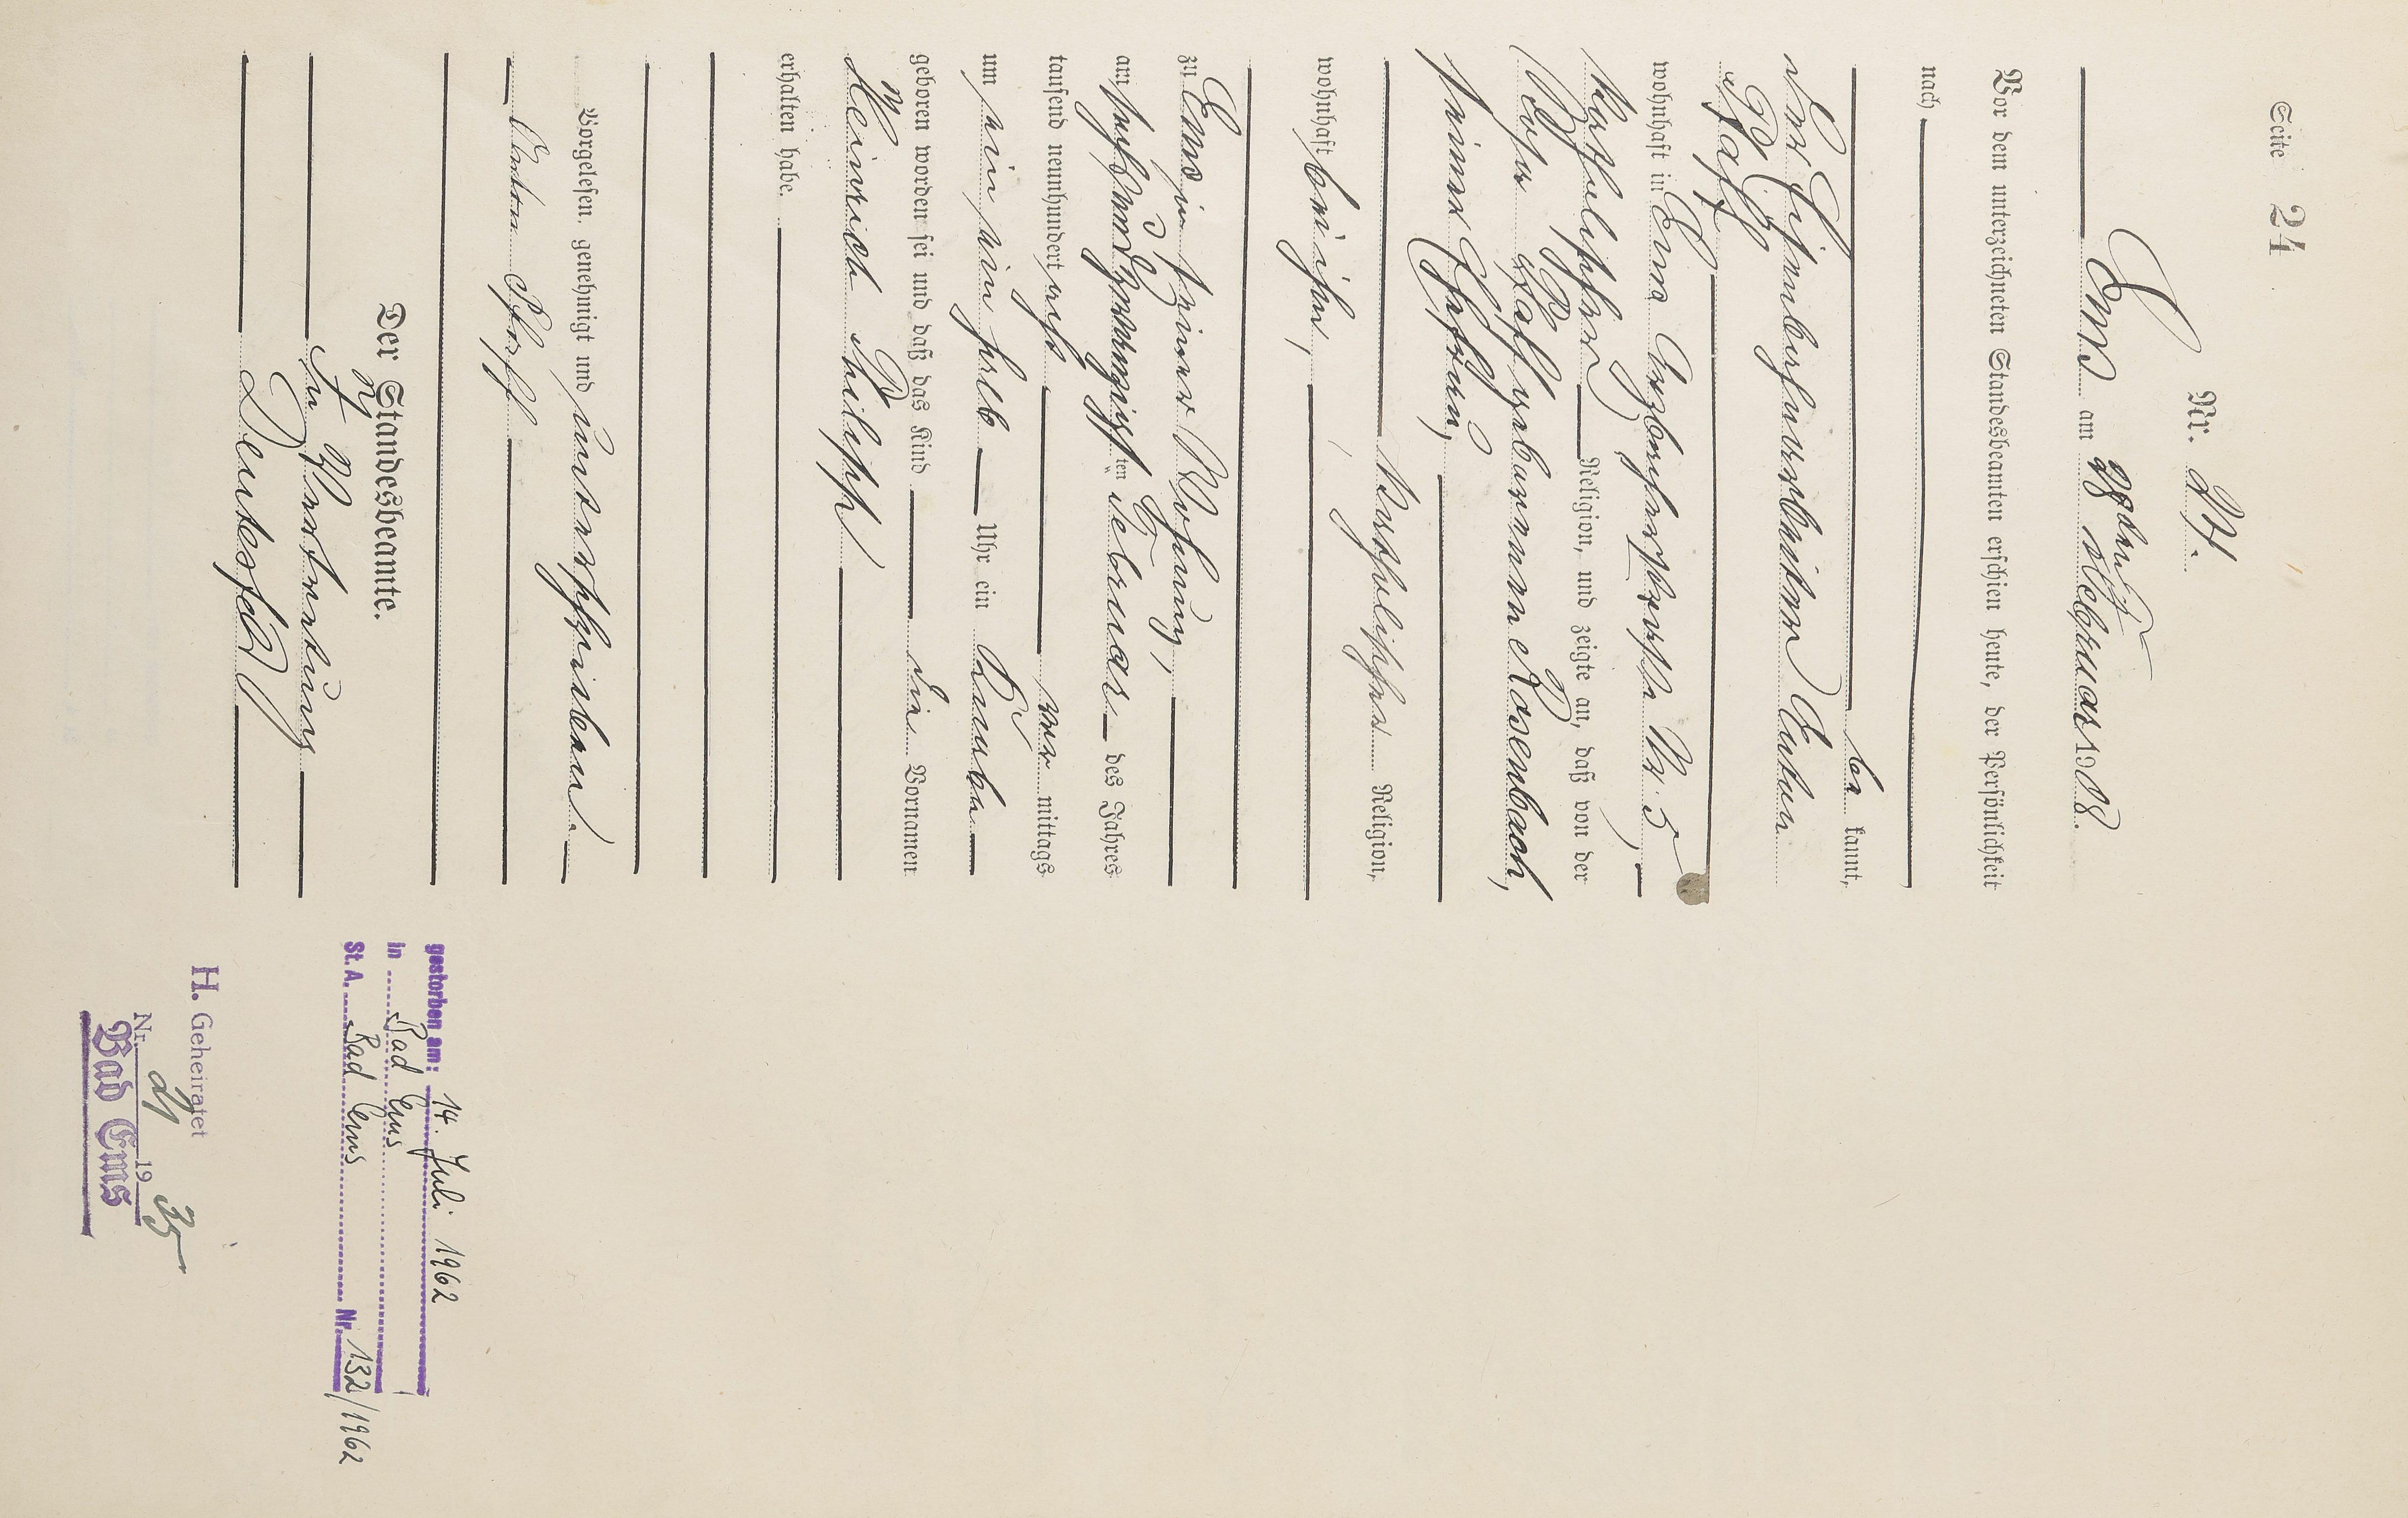 Seite 24
Nr. 24.
Ems am 28ten Februar 1908.
Vor dem unterzeichneten Standesbeamten erschien heute, der Persönlichkeit
nach
be kannt,
der Eisenbahnarbeiter Anton
Pfaff
wohnhaft in Ems, Arzbacherstraße Nr. 5,
katholischer Religion, und zeigte an, daß von der
Pfaff geborenen Rosenbach,
seiner Ehefrau,
katholischer Religion,
wohnhaft bei ihm,
zu Ems in seiner Wohnung,
am sechsundzwanzigsten Februar des Jahres
tausend neunhundert acht vor mittags
um ein ein halb Uhr ein Knabe
geboren worden sei und daß das Kind die Vornamen
Heinrich Philipp
erhalten habe.
Vorgelesen, genehmigt und unterschrieben.
Anton Pfaff
Der Standesbeamte.
In Vertretung
Deutesfeld
gestorben am: 14. Juli 1962
in Bad Ems
St. A. Bad Ems Nr. 132/1962
H. Geheiratet
Nr. 19 35
Bad Ems